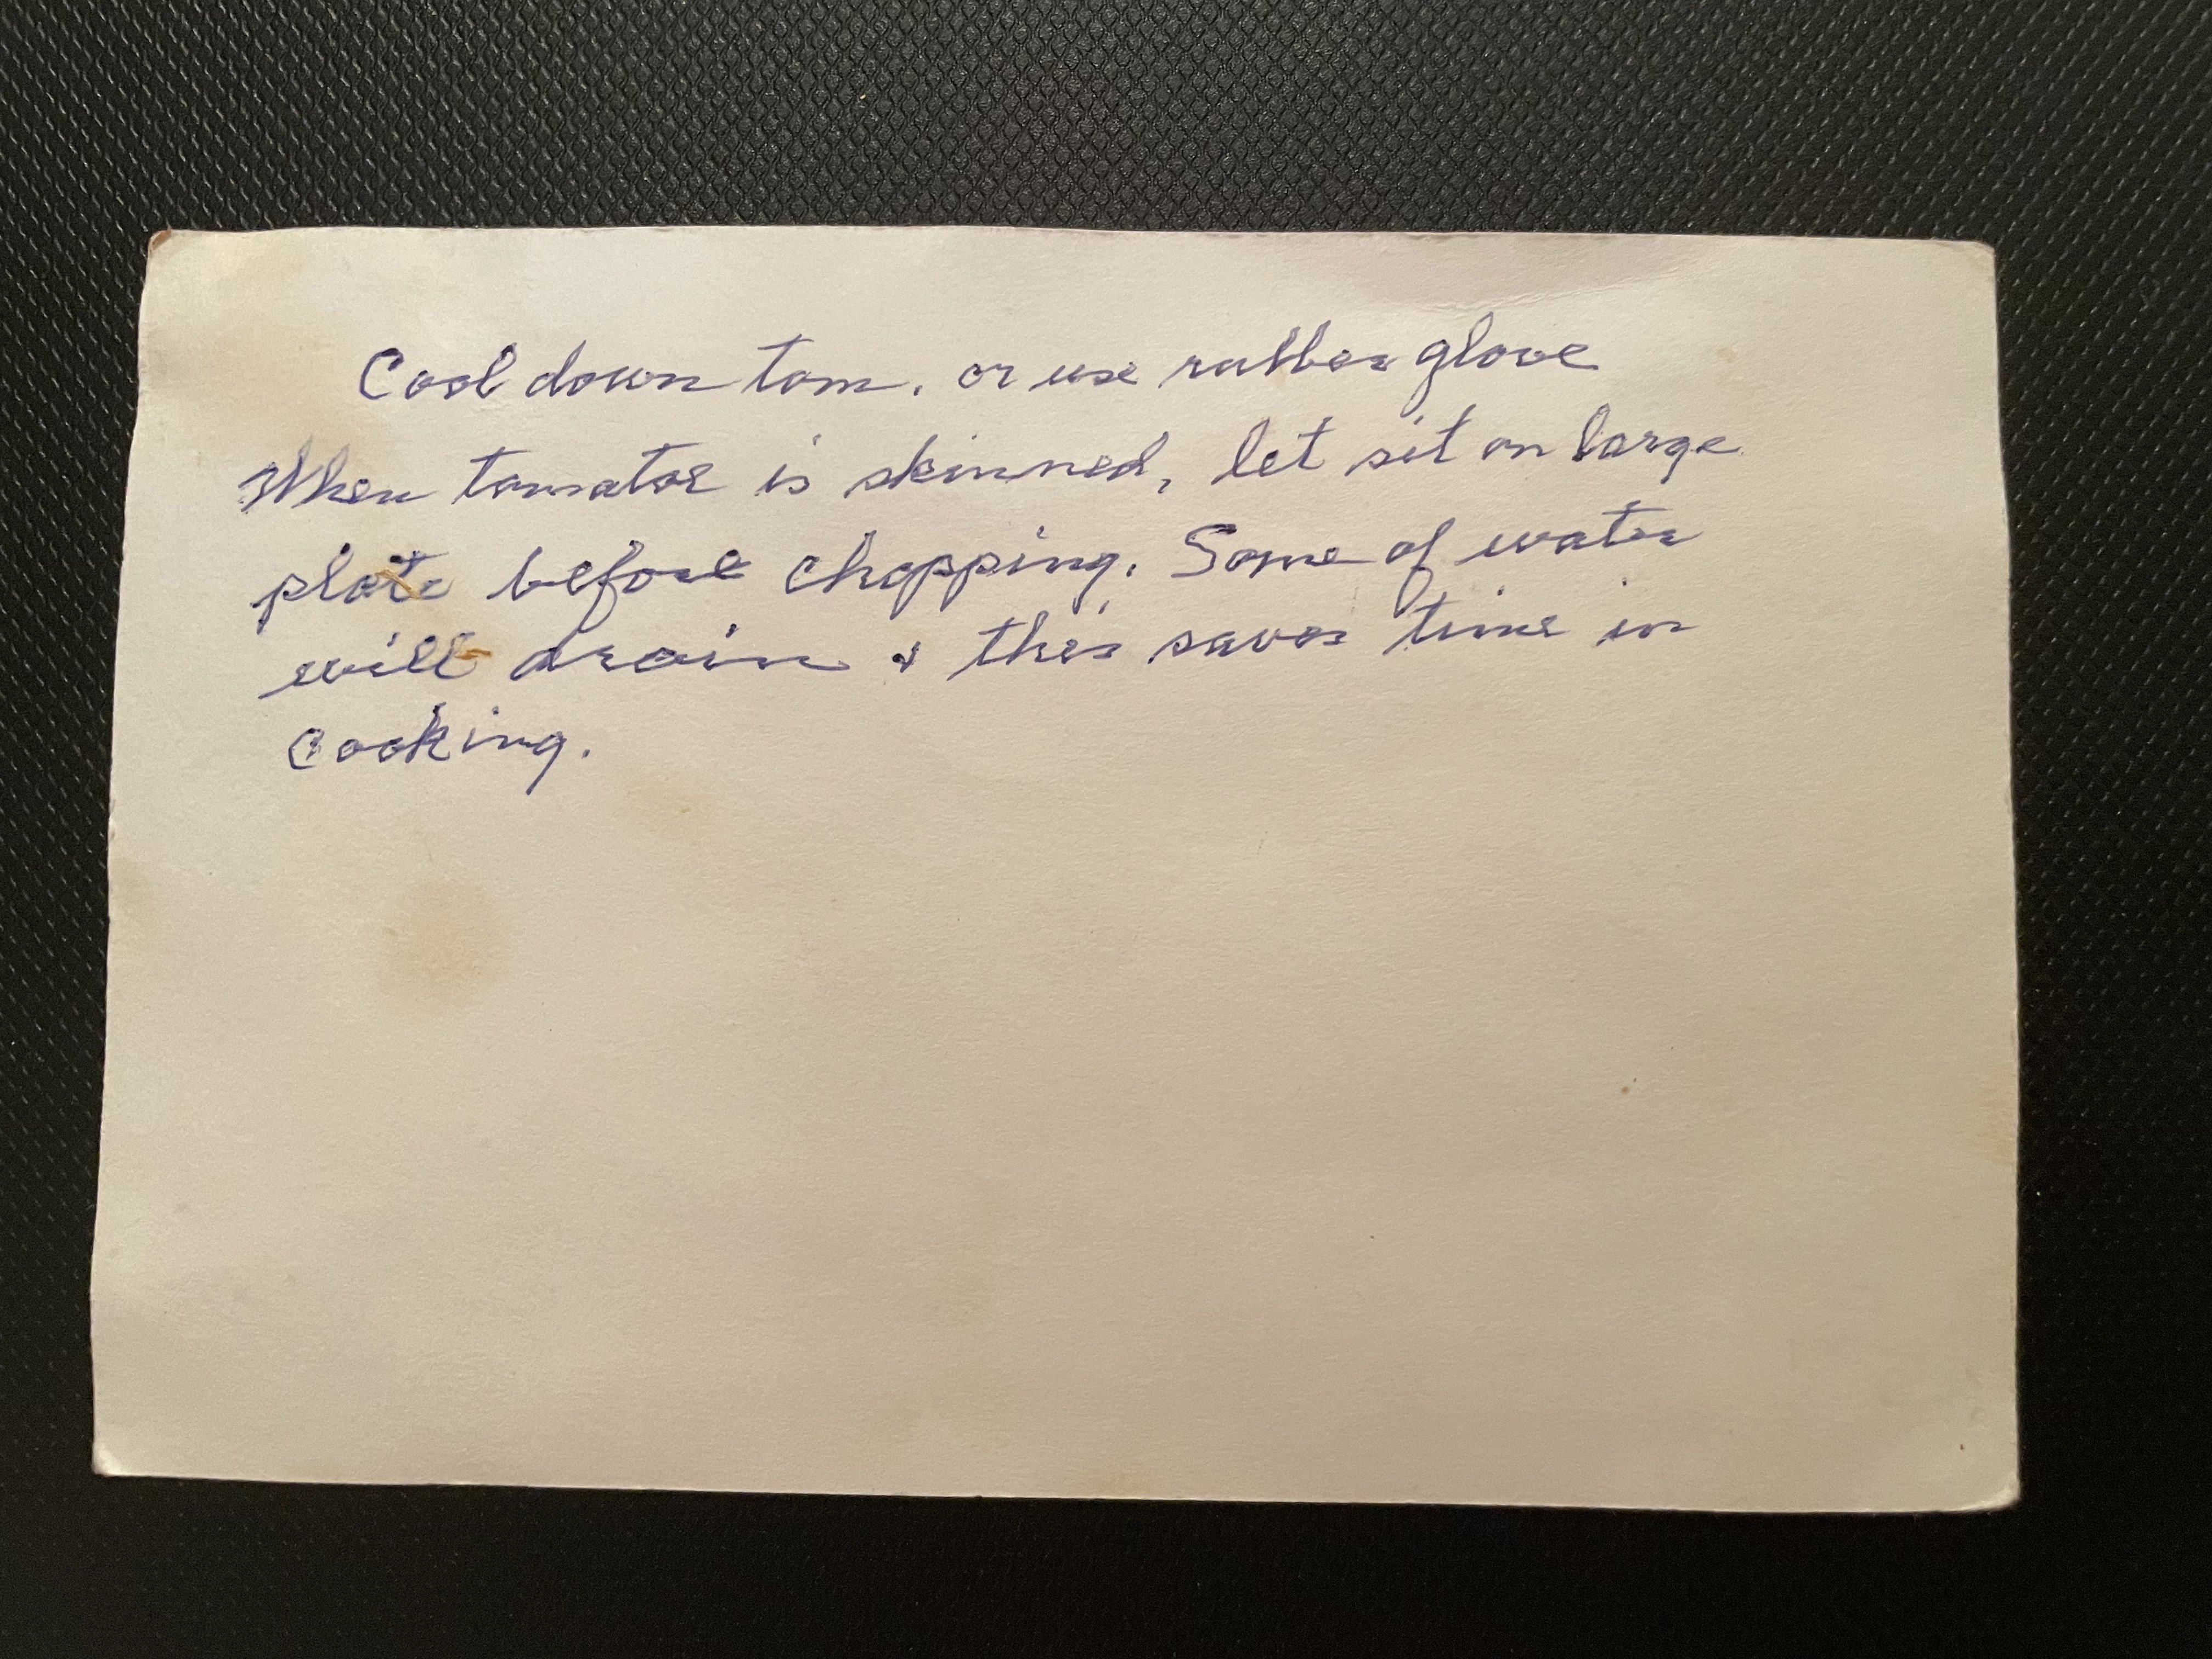 Cool down tom. or use rubber glove
When tomatoe is skinned, let sit on large
plate before chopping. Some of water
will drain & this saves time in
cooking.